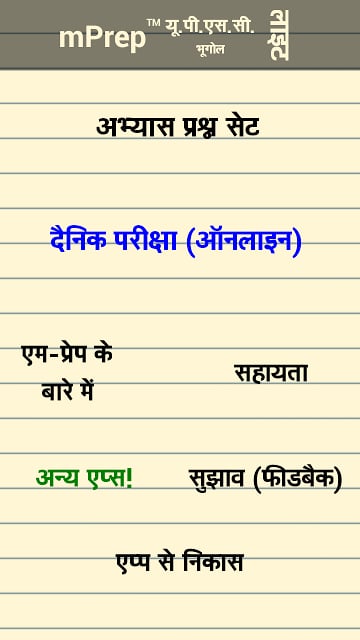 mPrep™ यू.पी.एस.सी.
भूगोल
लाइट
अभ्यास प्रश्न सेट
दैनिक परीक्षा (ऑनलाइन)
एम-प्रेप के
बारे में
सहायता
अन्य एप्स!
सुझाव (फीडबैक)
एप्प से निकास